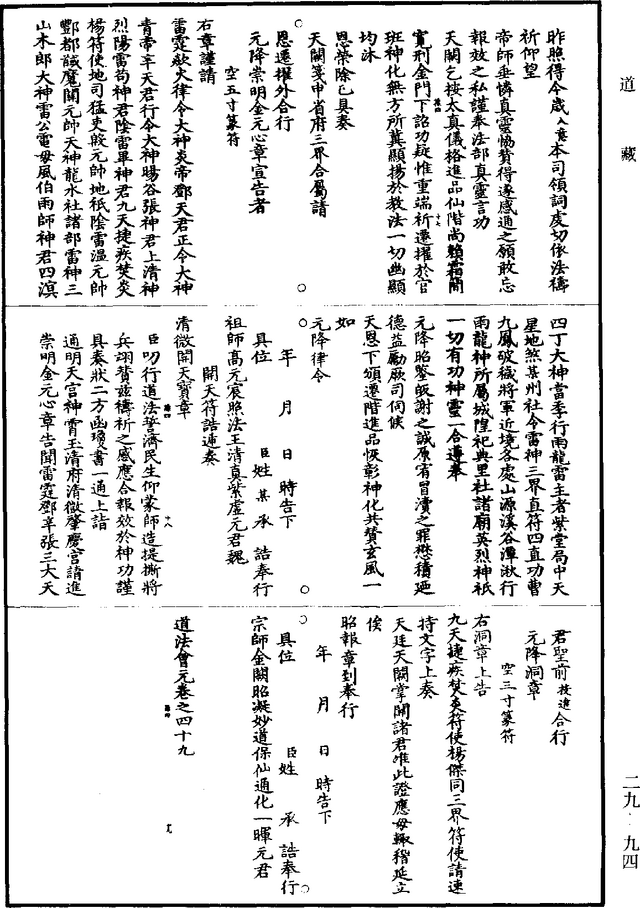 道藏
昨照得今歲入夏本司領詞虔切依法禱
祈仰望
帝師垂憐真靈協贊得遂感通之願敢忘
報效之私謹奉法部真靈言功
天闕乞按太真儀格進品仙階尚賴霜簡
實刑金門下詔功疑惟重端祈遷擢於官
班神化無方所冀顯揚於教法一切幽顯
均沐
恩榮除已具奏
天闕箋申省府三界合屬請
恩遷擢外合行
元降崇明金元心章宣告者
空五寸篆符
右章謹請
雷霆欻火律令大神炎帝鄧天君正令大神
青帝辛天君行令大神暘谷張神君上清神
烈陽雷苟神君陰雷畢神君九天捷疾焚炎
楊符使地司猛吏殷元帥地祇陰雷溫元帥
酆都馘魔關元帥天神龍水社諸部雷神三
山木郎大神雷公電母風伯雨師神君四溟
四丁大神當季行雨龍雷主者紫堂局中天
星地煞某州社令雷神三界直符四直功曹
九鳳破穢將軍近境各處山源溪谷潭湫行
雨龍神所屬城隍祀典里社諸廟英烈神祇
一切有功神靈一合遵奉
元降昭鑒皈謝之誠原宥冒瀆之罪懋積廼
德益勵厥司伺候
天恩下頒遷階進品恢彰神化共贊玄風一
如
元降律令
年 月 日 時告下
具位 臣姓 某 承 誥奉行
祖師高元宸照法王清真紫虛元君魏
開天符誥連奏
清微開天寶章
臣叨行道法誓濟民生仰蒙師造提撕將
兵翊贊茲禱祈之感應合報效於神功謹
具奏狀二方函瓊書一通上詣
通明天宮神霄玉清府清微肇慶宮請進
崇明金元心章告聞雷霆鄧辛張三大天
君聖前投進合行
元降洞章
空三寸篆符
右洞章上告
九天捷疾焚炎符使楊傑同三界符使請速
持文字上奏
天廷天闕掌開諸君唯此證應毋輒稽延立
俟
昭報章到奉行
年 月 日 時告下
具位 臣姓 承 誥奉行
宗師金闕昭凝妙道保仙通化一暉元君
道法會元卷之四十九
二九·九四